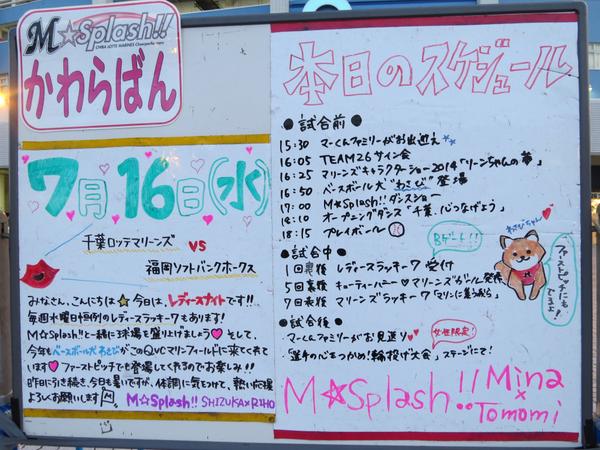 M☆Splash!!
CHIBA LOTTE MARINES
かわらばん
7月16日(水)
千葉ロッテマリーンズ
VS
福岡ソフトバンクホークス
みなさん、こんにちは☆今日は、レディースナイトです!!
毎週水曜日恒例のレディースラッキー7もあります!
M☆Splash!!と一緒に球場を盛り上げましょう♡そして、
今年もベースボール犬わさびがこのQVCマリンフィールドに来てくれて
います♥ファーストピッチでも登場してくれるのでお楽しみ!!
昨日に引き続き、今日も暑いですが、体調に気をつけて、熱い応援
よろしくお願いします
M☆Splash!! SHIZUKA×RIHO
本日のスケジュール
●試合前
15:30 マーくんファミリーがお出迎え
16:05 TEAM26サイン会
16:25 マリーンズキャラクターショー2014「リーンちゃんの夢」
16:50 ベースボール犬"わさび"登場
17:00 M☆Splash!!ダンスショー
18:10 オープニングダンス「千葉、心つなげよう」
18:15 プレイボール
●試合中
Bゲート!!
1回裏後 レディースラッキー7 受付
5回裏後 キューティーハニー♡マリーンズガール発信
7回表後 マリーンズラッキー7「マリンに集う我ら」
●試合後
マーくんファミリーがお見送り
女性限定!
「選手の心をつかめ!輪投げ大会」ステージにて!
わさびちゃん
ファーストピッチにも!
M☆Splash!!
Mina
×
Tomomi